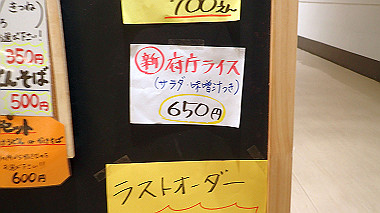 きつね
350円
そば
500円
セット
600円
700円
新 府庁ライス
(サラダ・味噌汁つき)
650円
ラストオーダー